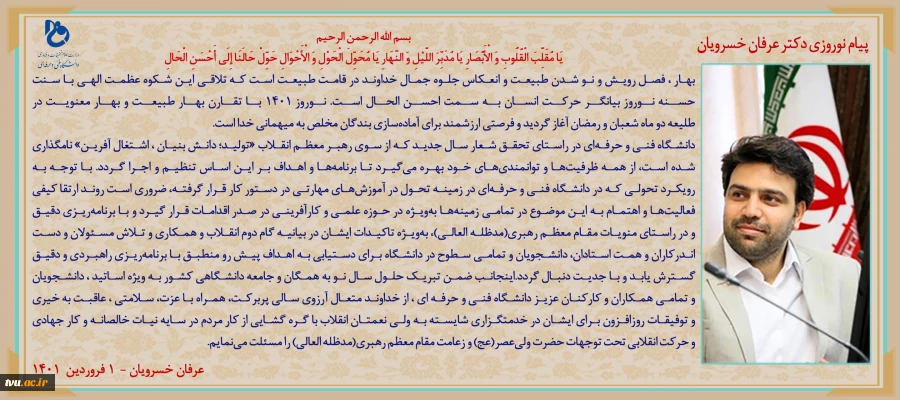 پیام نوروزی دکتر عرفان خسرویان
بسم الله الرحمن الرحیم
یَا مُقَلِّبَ الْقُلُوبِ وَ الْأَبْصَارِ یَا مُدَبِّرَ اللَّیْلِ وَ النَّهَارِ یَا مُحَوِّلَ الْحَوْلِ وَ الْأَحْوَالِ حَوِّلْ حَالَنَا إِلَى أَحْسَنِ الْحَالِ
بهار ، فصل رویش و نو شدن طبیعت و انعکاس جلوه جمال خداوند در قامت طبیعت است که تلاقی این شکوه عظمت الهی با سنت
حسنه نوروز بیانگر حرکت انسان به سمت احسن الحال است. نوروز ۱۴۰۱ با تقارن بهار طبیعت و بهار معنویت در
طلیعه دو ماه شعبان و رمضان آغاز گردید و فرصتی ارزشمند برای آماده‌سازی بندگان مخلص به میهمانی خدا است.
دانشگاه فنی و حرفه‌ای در راستای تحقق شعار سال جدید که از سوی رهبر معظم انقلاب «تولید؛ دانش بنیان ، اشتغال آفرین» نامگذاری
شده است، از همه ظرفیت‌ها و توانمندی‌های خود بهره می‌گیرد تا برنامه‌ها و اهداف بر این اساس تنظیم و اجرا گردد. با توجه به
رویکرد تحولی که در دانشگاه فنی و حرفه‌ای در زمینه تحول در آموزش‌های مهارتی در دستور کار قرار گرفته، ضروری است روند ارتقا کیفی
فعالیت‌ها و اهتمام به این موضوع در تمامی زمینه‌ها به‌ویژه در حوزه علمی و کارآفرینی در صدر اقدامات قرار گیرد و با برنامه‌ریزی دقیق
و در راستای منویات مقام معظم رهبری(مدظله العالی)، به‌ویژه تاکیدات ایشان در بیانیه گام دوم انقلاب و همکاری و تلاش مسئولان و دست
اندرکاران و همت استادان، دانشجویان و تمامی سطوح در دانشگاه برای دستیابی به اهداف پیش رو منطبق با برنامه‌ریزی راهبردی و دقیق
گسترش یابد و با جدیت دنبال گردد.اینجانب ضمن تبریک حلول سال نو به همگان و جامعه دانشگاهی کشور به ویژه اساتید ، دانشجویان
و تمامی همکاران و کارکنان عزیز دانشگاه فنی و حرفه ای ، از خداوند متعال آرزوی سالی پربرکت، همراه با عزت، سلامتی ، عاقبت به خیری
و توفیقات روزافزون برای ایشان در خدمتگزاری شایسته به ولی نعمتان انقلاب با گره گشایی از کار مردم در سایه نیات خالصانه و کار جهادی
و حرکت انقلابی تحت توجهات حضرت ولی‌عصر(عج) و زعامت مقام معظم رهبری(مدظله العالی) را مسئلت می‌نمایم.
عرفان خسرویان - ۱ فروردین ۱۴۰۱
tvu.ac.ir